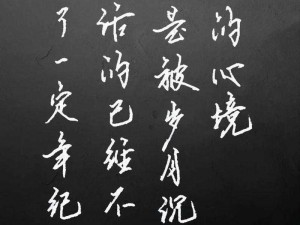 了一定年纪
活的已经不
是被岁月沉
的心境